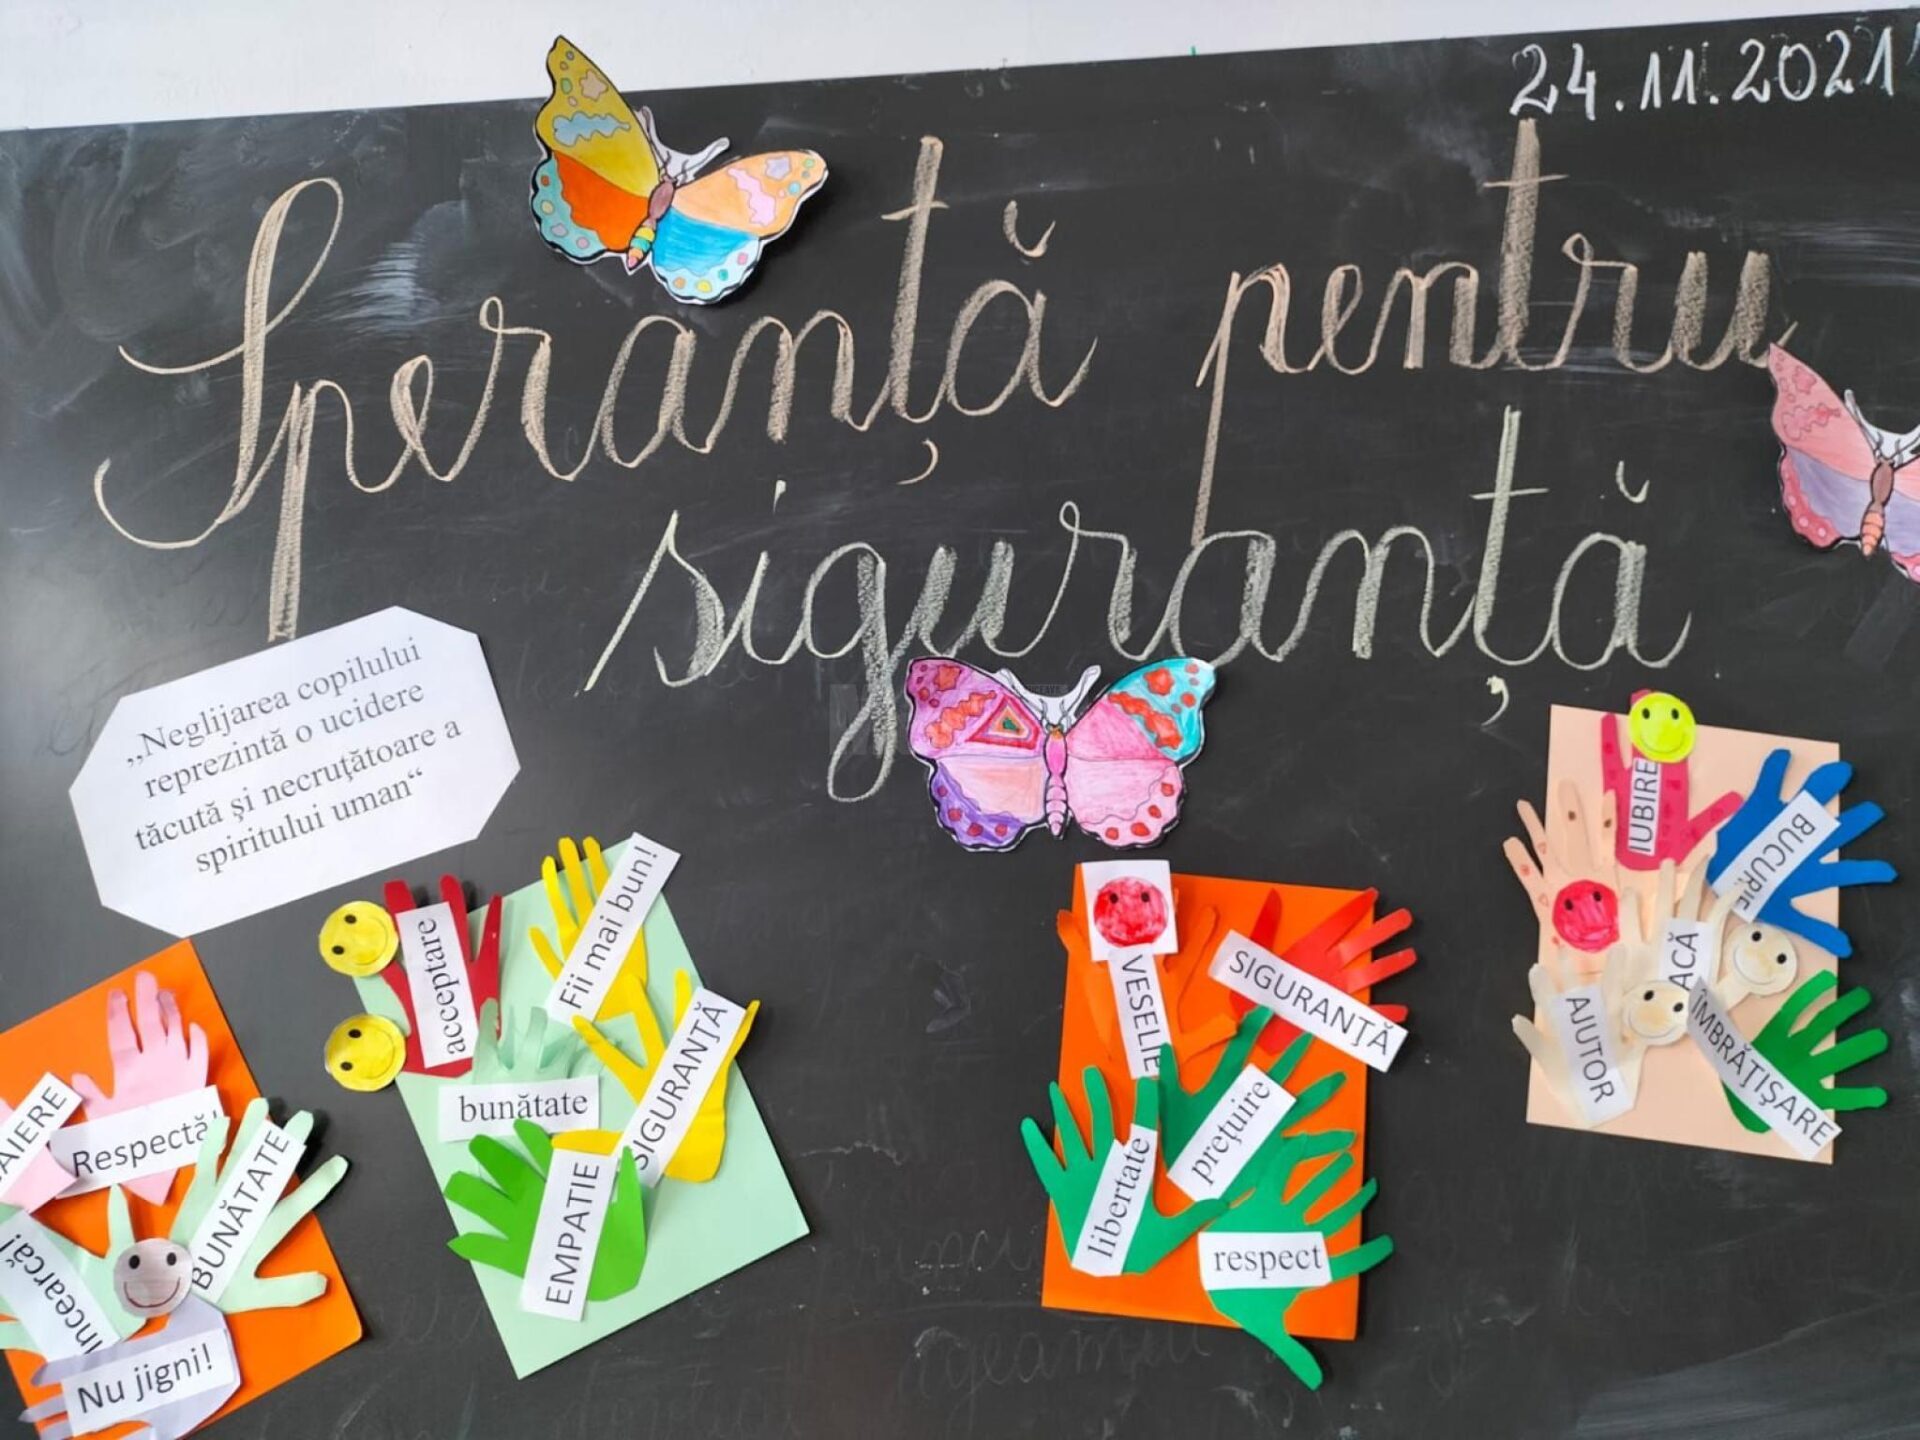 24.11.2021
Speranță pentru
siguranță
„Neglijarea copilului
reprezintă o ucidere
tăcută şi necruţătoare a
spiritului uman“
Respectă!
BUNĂTATE
Încearcă!
Nu jigni!
acceptare
Fii mai bun!
SIGURANŢĂ
bunătate
EMPATIE
VESELIE
SIGURANŢĂ
preţuire
libertate
respect
IUBIRE
BUCURIE
AJUTOR
ÎMBRĂŢIŞARE